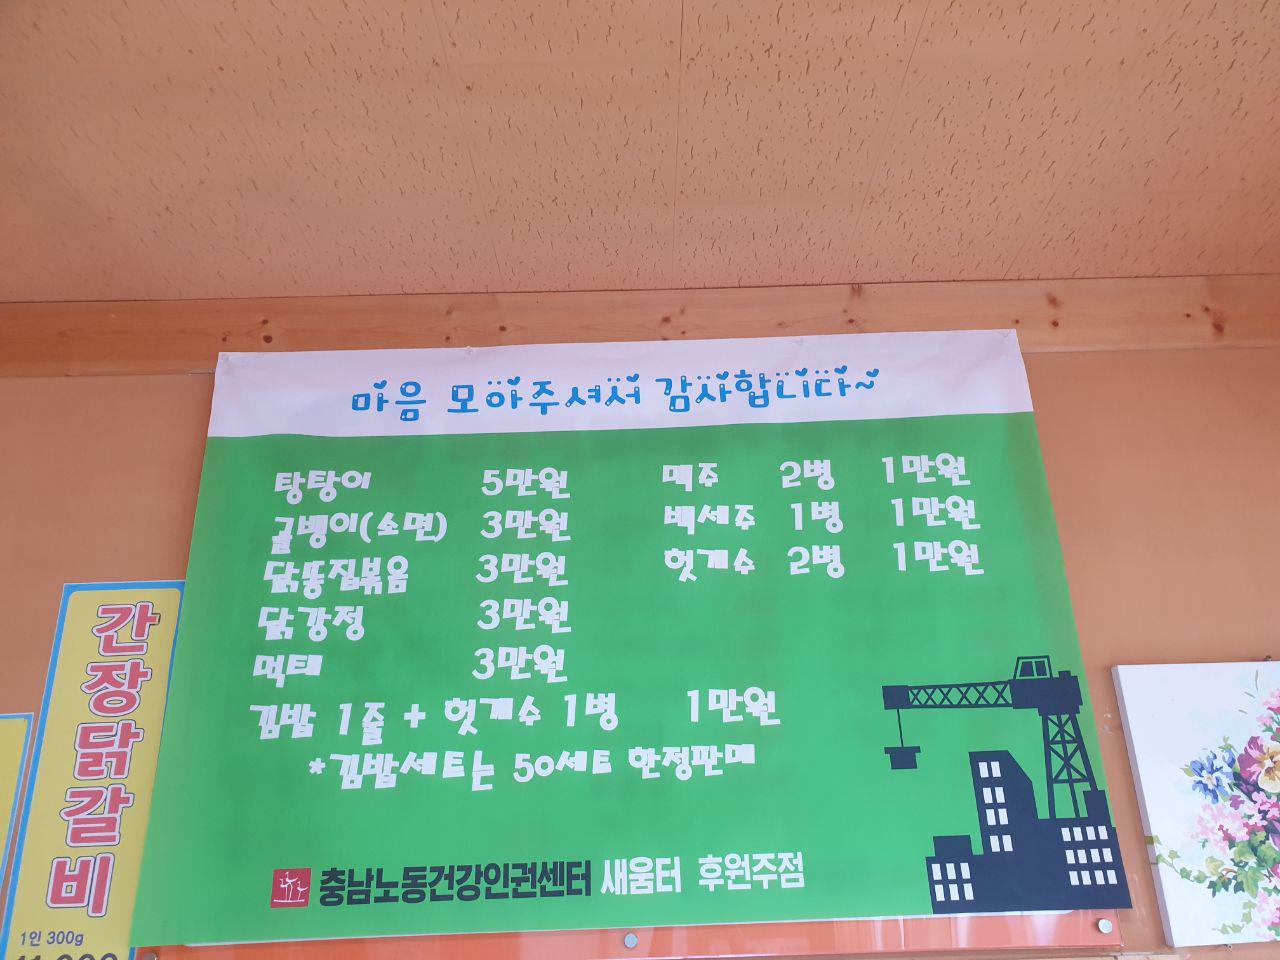 마음 모아주셔서 감사합니다~
탕탕이 5만원
골뱅이(소면) 3만원
닭똥집볶음 3만원
닭강정 3만원
먹태 3만원
맥주 2병 1만원
백세주 1병 1만원
헛개수 2병 1만원
김밥 1줄 + 헛개수 1병 1만원
*김밥세트는 50세트 한정판매
충남노동건강인권센터 새움터 후원주점
간장닭갈비
1인 300g